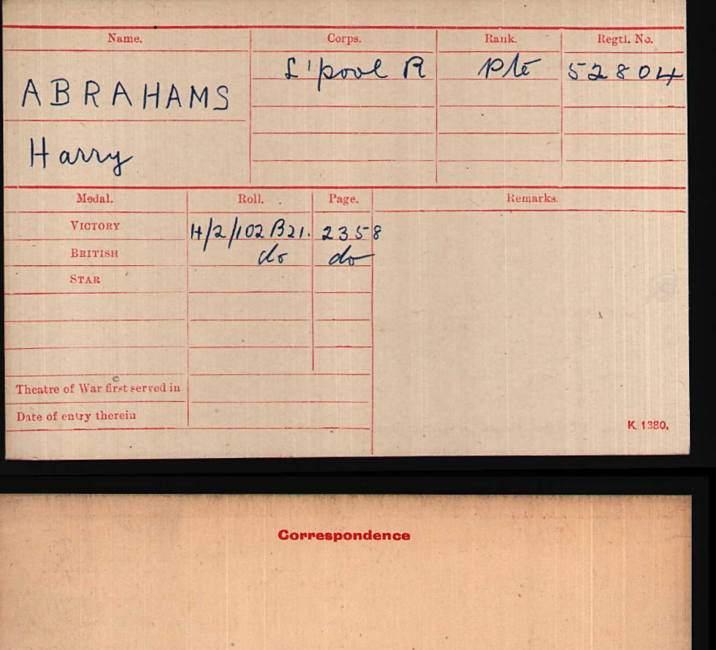 Name. Corps. Rank. Regtl. No.
ABRAHAMS L'pool R Pte 52804
Harry
Medal. Roll. Page. Remarks.
VICTORY H/2/102 B21. 2358
BRITISH do do
STAR
Theatre of War first served in
Date of entry therein
K. 1380.
Correspondence